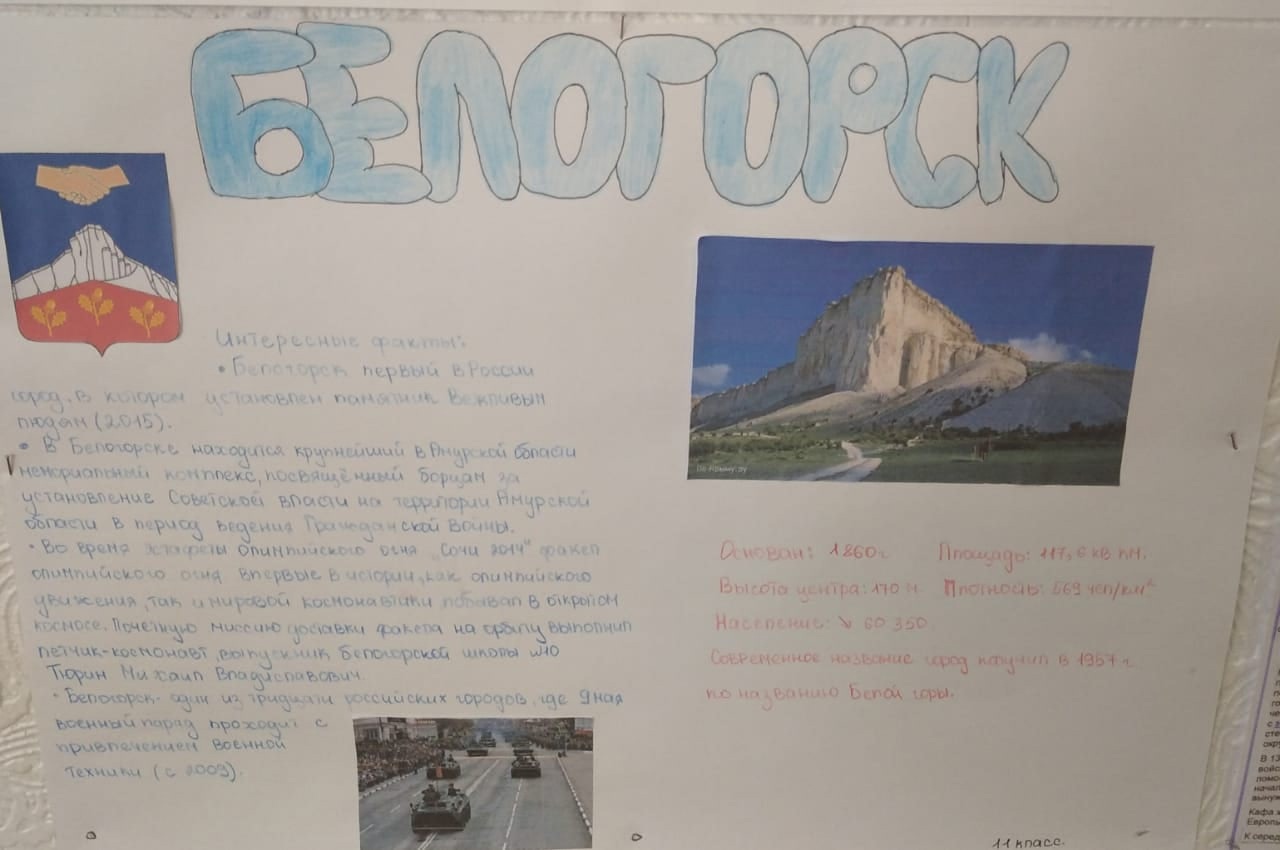 БЕЛОГОРСК
Интересные факты:
• Белогорск первый в России
город, в котором установлен памятник Вежливым
людям (2015).
• В Белогорске находится крупнейший в Амурской области
мемориальный комплекс, посвящённый борцам за
установление Советской власти на территории Амурской
области в период ведения Гражданской Войны.
• Во время эстафеты олимпийского огня „Сочи 2014" факел
олимпийского огня впервые в истории, как олимпийского
движения, так и мировой космонавтики побывал в открытом
космосе. Почётную миссию доставки факела на орбиту выполнил
летчик-космонавт, выпускник белогорской школы №10
Тюрин Михаил Владиславович.
• Белогорск- один из тридцати российских городов, где 9 мая
военный парад проходит с
привлечением военной
техники (с 2009).
По-Крыму.ру
Основан: 1860г. Площадь: 117,6 кв км.
Высота центра: 170 м. Плотность: 569 чел/км²
Население: ↘ 60 350.
Современное название город получил в 1957 г
по названию Белой горы.
11 класс.
В 13
войс
помо
начал
вынуж
Кафа ж
Европы
К серед